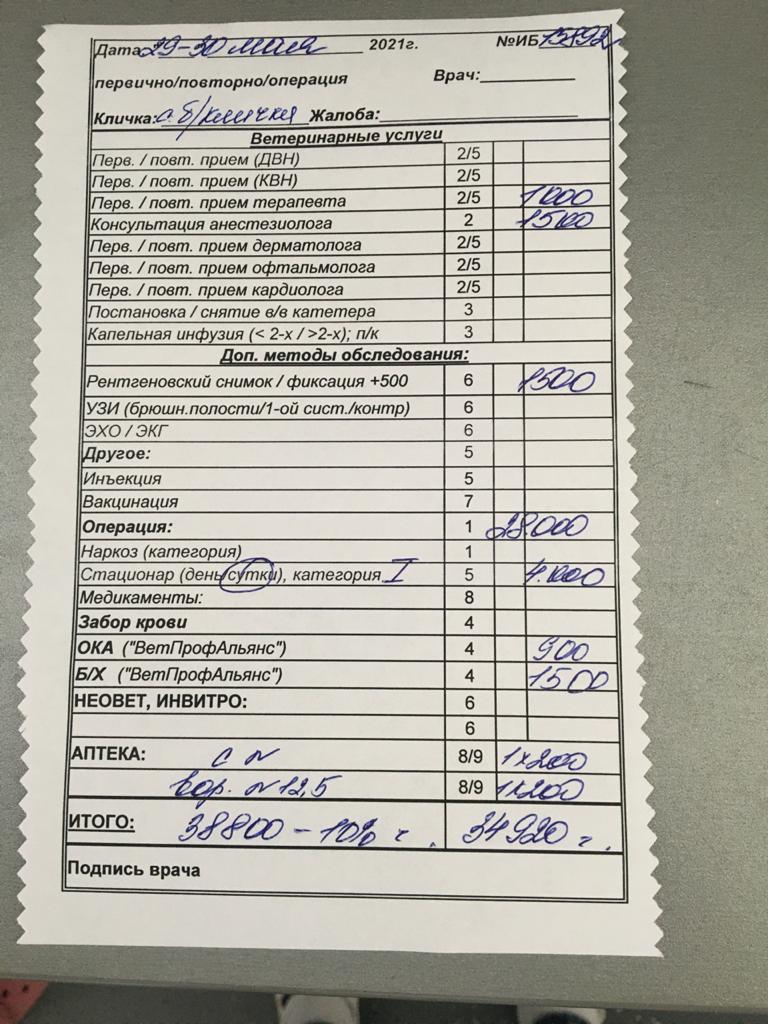 Дата 29-30 мая 2021г. №ИБ 15892
первично/повторно/операция Врач:
Кличка: с. б/клички Жалоба:
Ветеринарные услуги
Перв. / повт. прием (ДВН) 2/5
Перв. / повт. прием (КВН) 2/5
Перв. / повт. прием терапевта 2/5 1000
Консультация анестезиолога 2 1500
Перв. / повт. прием дерматолога 2/5
Перв. / повт. прием офтальмолога 2/5
Перв. / повт. прием кардиолога 2/5
Постановка / снятие в/в катетера 3
Капельная инфузия (< 2-х / >2-х); п/к 3
Доп. методы обследования:
Рентгеновский снимок / фиксация +500 6 1500
УЗИ (брюшн.полости/1-ой сист./контр) 6
ЭХО / ЭКГ 6
Другое: 5
Инъекция 5
Вакцинация 7
Операция: 1 28.000
Наркоз (категория) 1
Стационар (день/сутки), категория I 5 4.000
Медикаменты: 8
Забор крови 4
ОКА ("ВетПрофАльянс") 4 900
Б/Х ("ВетПрофАльянс") 4 1500
НЕОВЕТ, ИНВИТРО: 6
6
АПТЕКА: с N 8/9 1x200
вор. N 12,5 8/9 1x200
ИТОГО: 38800 - 10% 34920
Подпись врача